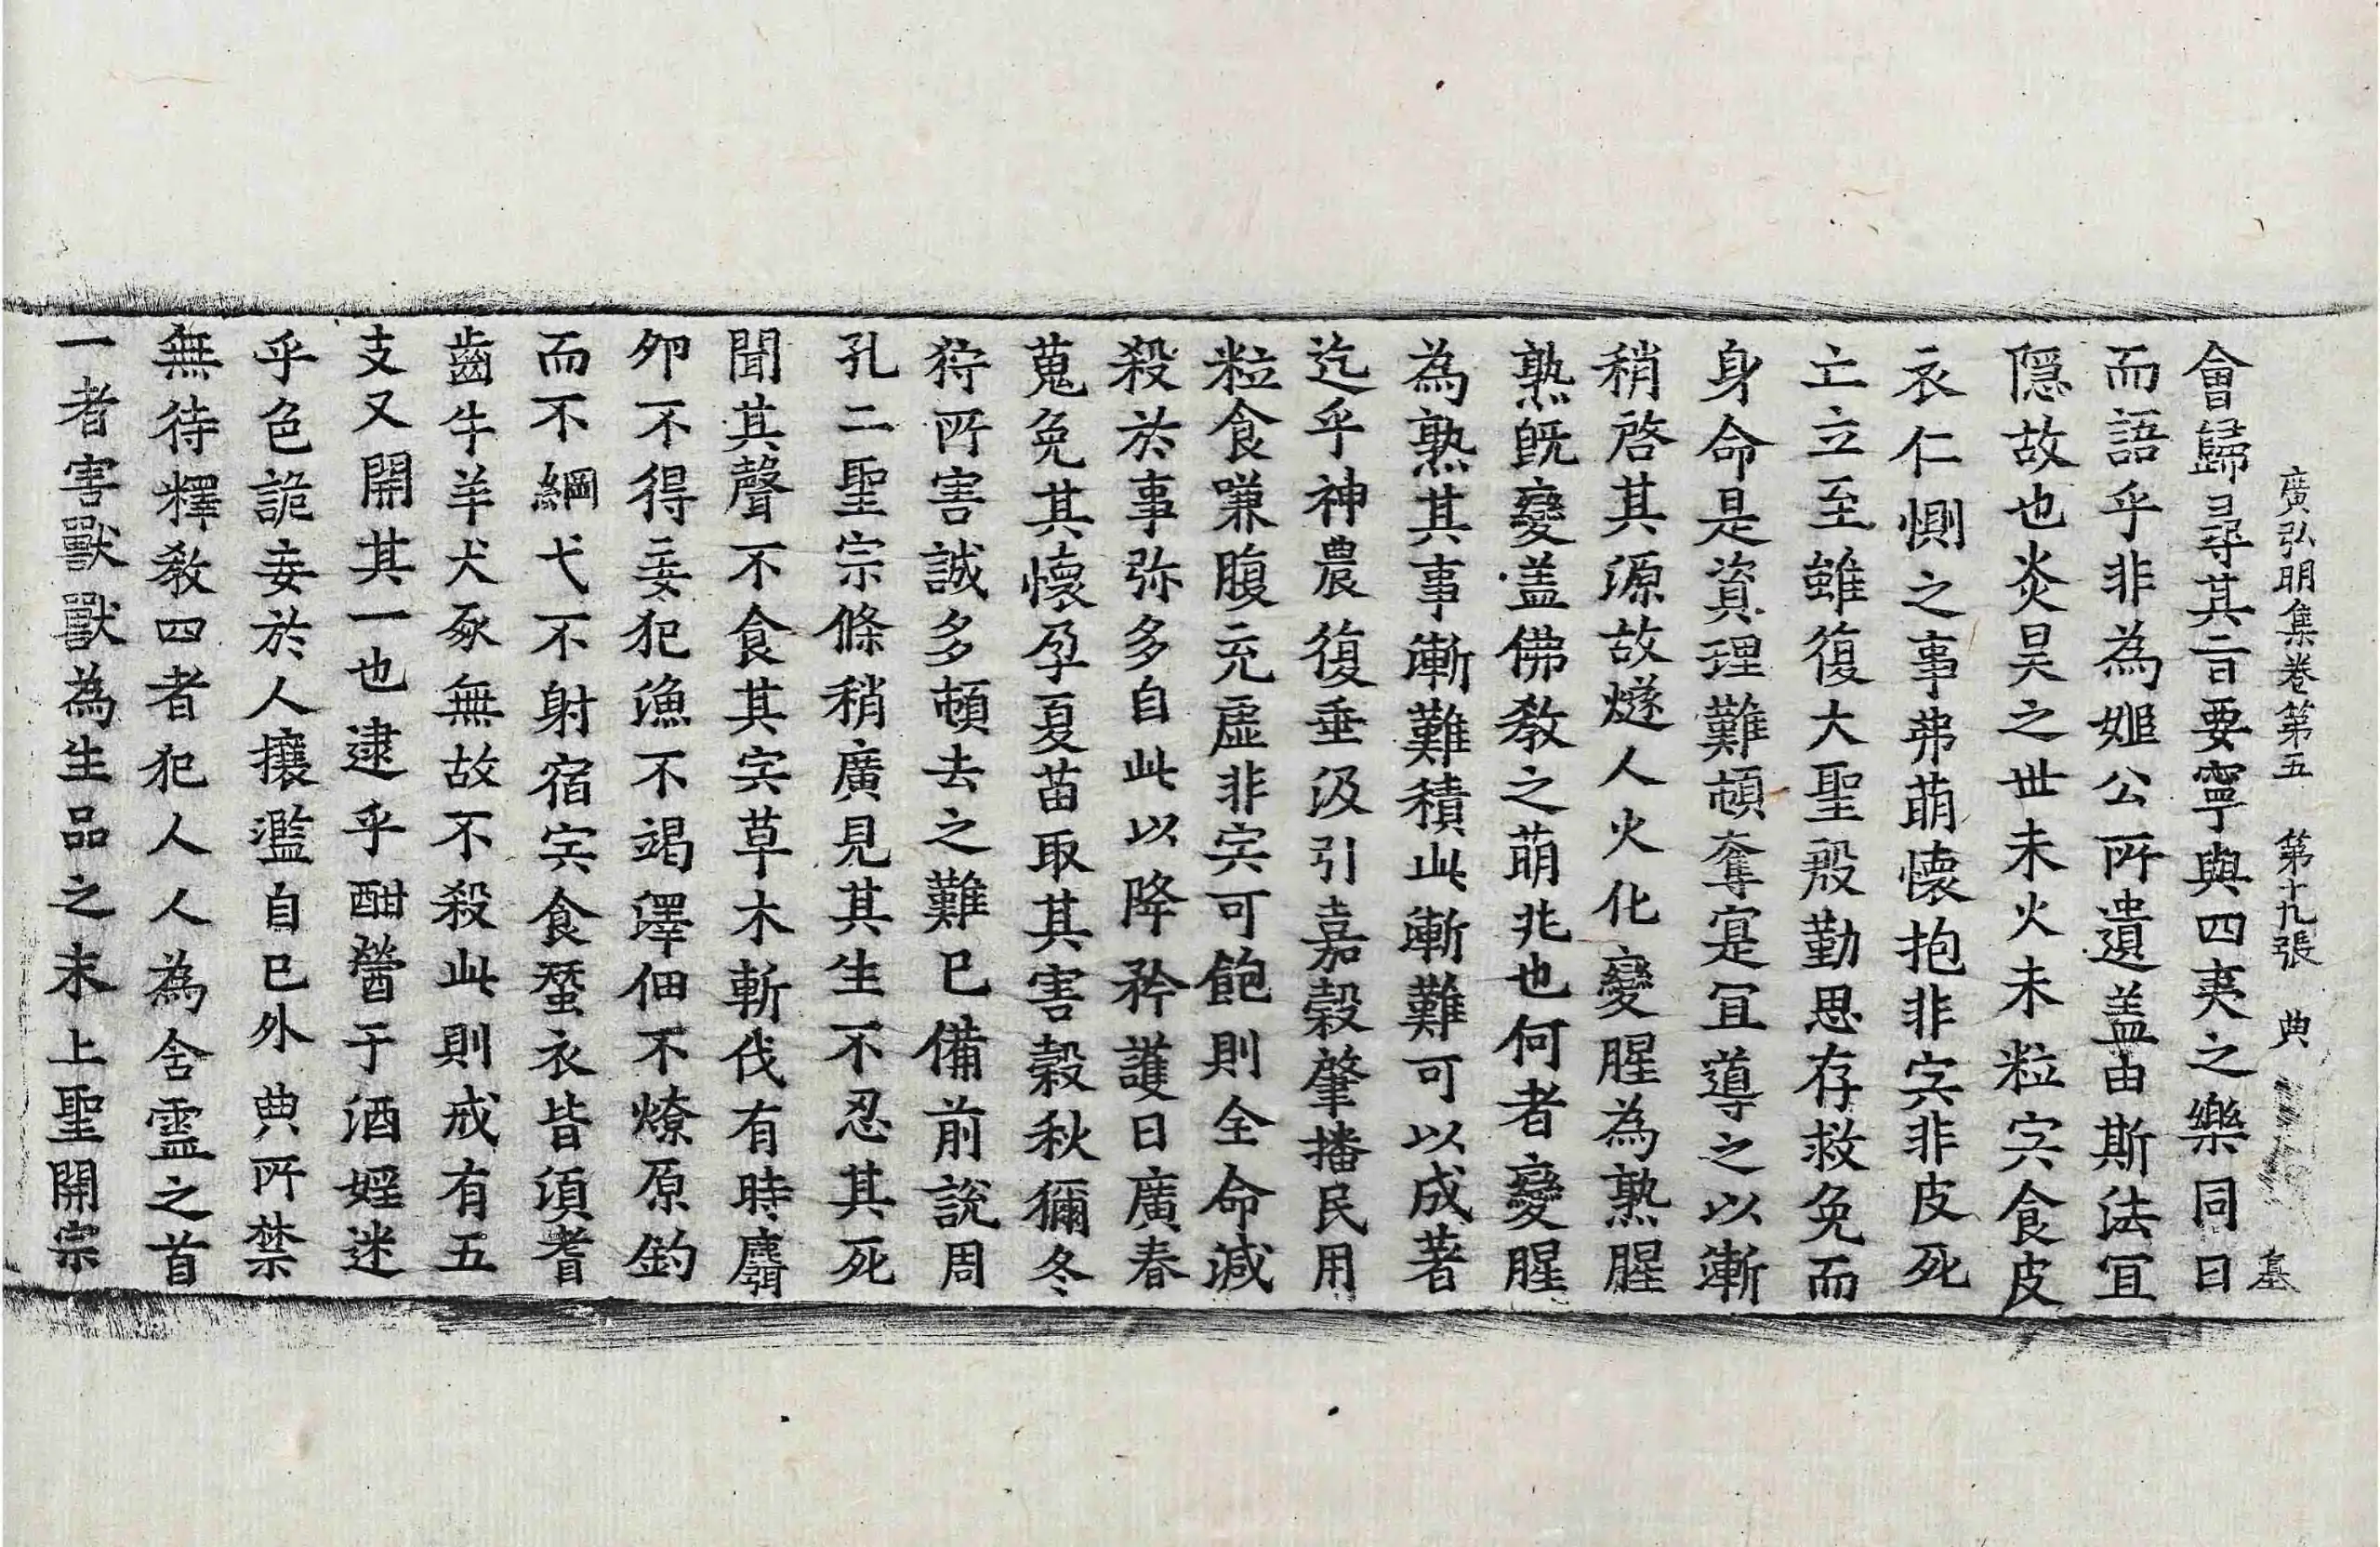 廣弘明集卷第五 第十九張 典
會歸尋其旨要寧與四夷之樂同日
而語乎非為姬公所遺盖由斯法冝
隱故也炎昊之世未火未粒宍食皮
衣仁惻之事弗萌懷抱非宍非皮死
亡立至雖復大聖殷勤思存救免而
身命是資理難頓奪寔冝導之以漸
稍啓其源故燧人火化變腥為熟腥
熟既變盖佛教之萌兆也何者變腥
為熟其事漸難積此漸難可以成著
迄乎神農復垂汲引嘉穀肇播民用
粒食嗛腹充虛非宍可飽則全命減
殺於事弥多自此以降矜護日廣春
蒐免其懷孕夏苗取其害穀秋獮冬
狩所害誠多頓去之難已備前說周
孔二聖宗條稍廣見其生不忍其死
聞其聲不食其宍草木斬伐有時麛
夘不得妄犯漁不竭澤佃不燎原釣
而不綱弋不射宿宍食蠶衣皆須耆
齒牛羊犬豕無故不殺此則戒有五
支又開其一也逮乎酣䣱于酒婬迷
乎色詭妄於人攘濫自已外典所禁
無待釋教四者犯人人為含靈之首
一者害獸獸為生品之末上聖開宗